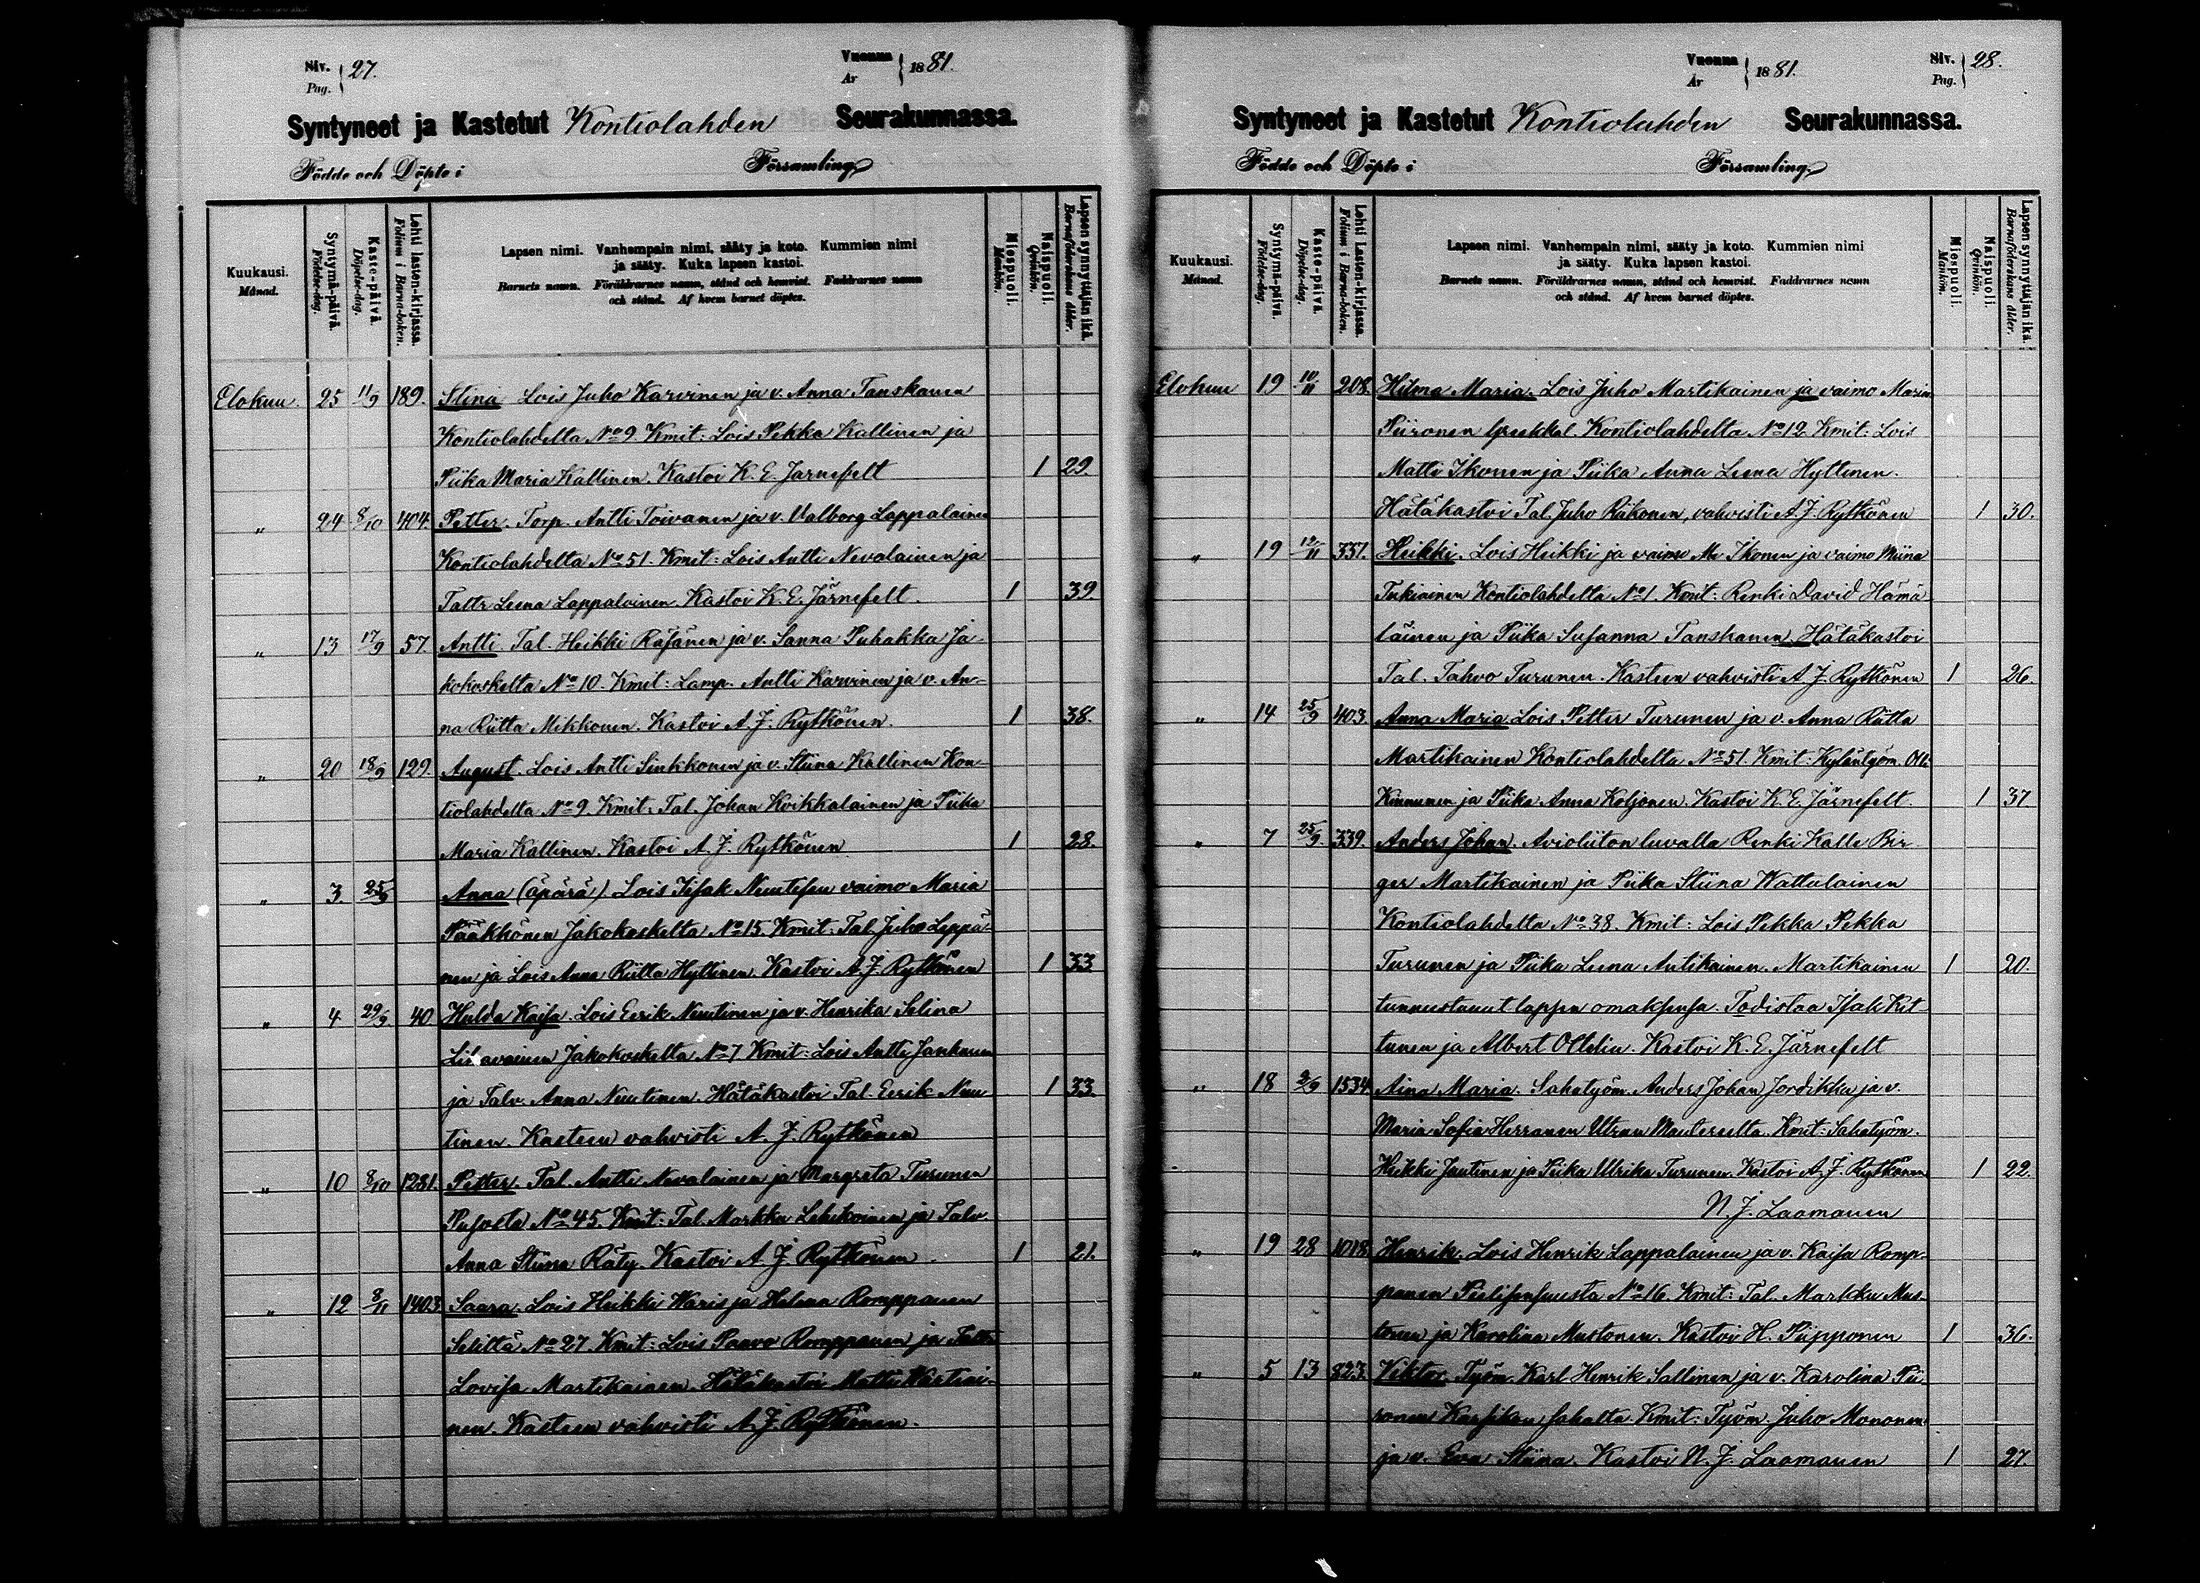 Siv. 27.
Pag.
Vuonna 1881.
År
Syntyneet ja Kastetut Kontiolahden Seurakunnassa.
Födde och Döpte i Församling
Kuukausi.
Månad.
Syntymä-päivä.
Födelse-dag.
Kaste-päivä.
Döpelse-dag.
Lehti lasten-kirjassa.
Folium i Barna-boken.
Lapsen nimi. Vanhempain nimi, sääty ja koto. Kummien nimi
ja sääty. Kuka lapsen kastoi.
Barnets namn. Föräldrarnes namn, stånd och hemvist. Faddrarnes namn
och stånd. Af hvem barnet döptes.
Miespuoli.
Mankön.
Naispuoli.
Qvinkön.
Lapsen synnyttäjän ikä.
Barnaföderskans ålder.
Elokuu. 25 11/9 189. Stina Lois Juho Karvinen ja v. Anna Tanskanen
Kontiolahdelta No 9 Kmit: Lois Pekka Kallinen ja
Piika Maria Kallinen. Kastoi K. E. Jarnefelt 1 29.
" 24 8/10 404. Petter. Torp. Antti Toivanen ja v. Valborg Lappalainen
Kontiolahdelta No 51. Kmit: Lois Antti Nevalainen ja
Taltr Leena Lappalainen. Kastoi K. E. Järnefelt. 1 39
" 13 17/9 57. Antti. Tal. Heikki Räsänen ja v. Sanna Puhakka Ja-
kokoskelta No 10. Kmit: Lamp. Antti Karvinen ja v. An-
na Riitta Mikkonen. Kastoi A. J. Rytkönen. 1 38.
" 20 18/9 129. August. Lois Antti Sinkkonen ja v. Stiina Kallinen Kon-
tiolahdelta No 9. Kmit: Tal. Johan Kvikkalainen ja Piika
Maria Kallinen. Kastoi A. J. Rytkönen 1 28.
" 3 25/9 Anna (äpärä) Lois Iisak Nuutisen vaimo Maria
Pääkkönen Jakokoskelta No 15. Kmit: Tal. Juho Leppä-
nen ja Lois Anna Riitta Hyttinen. Kastoi A. J. Rytkönen 1 33
" 4 29/9 40 Hulda Kaisa. Lois Eerik Nuutinen ja v. Henrika Selina
Lihavainen Jakokoskelta No 7 Kmit: Lois Antti Janhunen
ja Talv. Anna Nuutinen. Hätäkastoi Tal. Eerik Nuu 1 33.
tinen. Kasteen vahvisti A. J. Rytkönen
" 10 8/10 1281. Petter. Tal. Antti Nevalainen ja Margreta Turunen
No 45. Kmit: Tal. Markku Lehikoinen ja Talv.
Anna Stiina Räty. Kastoi A. J. Rytkönen. 1 21.
" 12 8/11 1403. Saara. Lois Heikki Waris ja Helena Romppanen
Seliltä No 27 Kmit: Lois Paavo Romppanen ja Taltr
Lovisa Martikainen. Hätäkastoi Matti
nen. Kasteen vahvisti A. J. Rytkönen.
Vuonna 1881.
År
Siv. 28.
Pag.
Syntyneet ja Kastetut Kontiolahden Seurakunnassa.
Födde och Döpte i Församling.
Kuukausi.
Månad.
Syntymä-päivä.
Födelse-dag.
Kaste-päivä.
Döpelse-dag.
Lehti Lasten-kirjassa.
Folium i Barna-boken.
Lapsen nimi. Vanhempain nimi, sääty ja koto. Kummien nimi
ja sääty. Kuka lapsen kastoi.
Barnets namn. Föräldrarnes namn, stånd och hemvist. Faddrarnes namn
och stånd. Af hvem barnet döptes.
Miespuoli.
Mankön.
Naispuoli.
Qvinkön.
Lapsen synnyttäjän ikä.
Barnaföderskans ålder.
Elokuu 19 10/11 208. Hilma Maria. Lois Juho Martikainen ja vaimo Maria
Piironen Kontiolahdelta No 12. Kmit: Lois
Matti Ikonen ja Piika Anna Leena Hyttinen.
Hätäkastoi Tal. Juho Räkönen, vahvisti A. J. Rytkönen 1 30.
" 19 12/11 331. Heikki. Lois Heikki ja vaimo M. Ikonen ja vaimo Miina
Tukiainen Kontiolahdelta No 1. Kmit: Renki David Hämä
läinen ja Piika Susanna Tanskanen. Hätäkastoi
Tal. Tahvo Turunen. Kasteen vahvisti A. J. Rytkönen 1 26.
" 14 25/9 403. Anna Maria. Lois Petter Turunen ja v. Anna Riitta
Martikainen Kontiolahdelta No 51. Kmit: Kyläntyöm. Ott:
Kinnunen ja Piika Anna Koljonen. Kastoi K. E. Järnefelt. 1 37
" 7 25/9. 339. Anders Johan. Avioliiton luvalla Renki Kalle Bir
ger Martikainen ja Piika Stiina Wattulainen
Kontiolahdelta No 38. Kmit: Lois Pekka Pekka
Turunen ja Piika Leena Antikainen. Martikainen 1 20.
tunnustanut lapsen omaksensa. Todistaa Isak Kit-
tunen ja Albert Ottelin. Kastoi K. E. Järnefelt
" 18 2/9 1534. Aina Maria. Sahatyöm. Anders Johan Jordikka ja v.
Maria Sofia Herranen Utran Mantereelta. Kmit: Sahatyöm.
Heikki Juutinen ja Piika Ulrika Turunen. Kastoi A. J. Rytkönen 1 22.
N. J. Laamanen
" 19 28 1018. Henrik. Lois Henrik Lappalainen ja v. Kaisa Romp-
panen Pielisensuusta No 16. Kmit: Tal. Markku Mus-
tonen ja Karolina Mustonen. Kastoi H. Piipponen 1 36.
" 5 13 823. Viktor. Työm. Karl Henrik Sallinen ja v. Karolina Pii-
ronen sahalta. Kmit: Työm. Juho Mononen
ja v. Eva Stiina. Kastoi N. J. Laamanen 1 27.